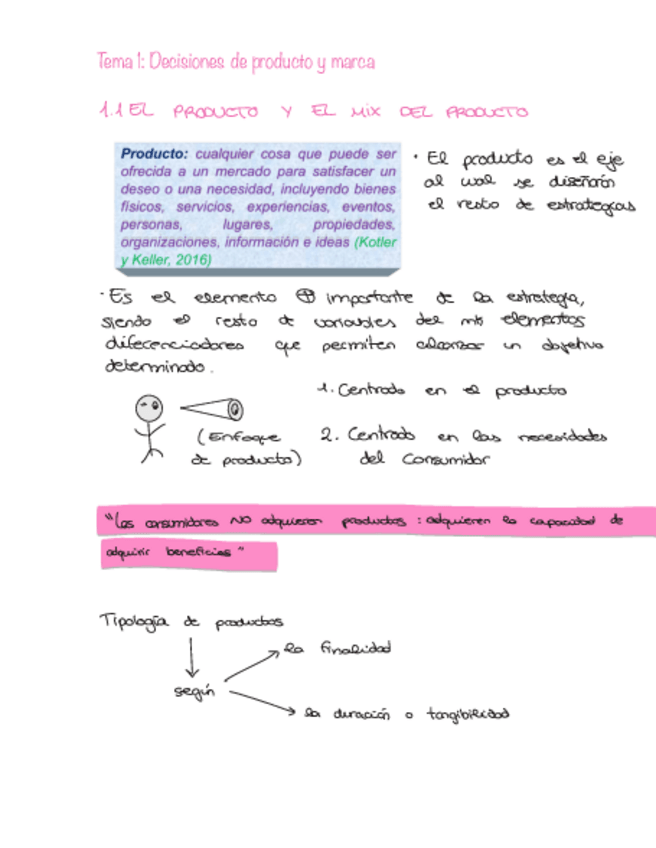 Tema 1: Decisiones de producto y marca
1.1 EL PRODUCTO Y EL MIX DEL PRODUCTO
Producto: cualquier cosa que puede ser
ofrecida a un mercado para satisfacer un
deseo o una necesidad, incluyendo bienes
físicos, servicios, experiencias, eventos,
personas, lugares, propiedades,
organizaciones, información e ideas (Kotler
y Keller, 2016)
· El producto es el eje
al cual se diseñarán
el resto de estrategias
· Es el elemento ⊕ importante de la estrategia,
siendo el resto de variables del mix elementos
diferenciadores que permiten alcanzar un objetivo
determinado.
1. Centrado en el producto
(Enfoque
de producto)
2. Centrado en las necesidades
del Consumidor
"Los consumidores NO adquieren productos : adquieren la capacidad de
adquirir beneficios"
Tipología de productos
según
la finalidad
la duración o tangibilidad